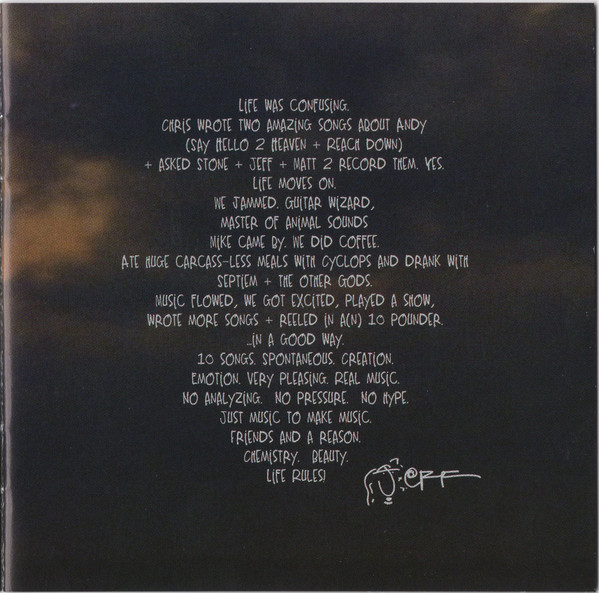 LIFE WAS CONFUSING.
CHRIS WROTE TWO AMAZING SONGS ABOUT ANDY
(SAY HELLO 2 HEAVEN + REACH DOWN)
+ ASKED STONE + JEFF + MATT 2 RECORD THEM. YES.
LIFE MOVES ON.
WE JAMMED. GUITAR WIZARD,
MASTER OF ANIMAL SOUNDS
MIKE CAME BY. WE DID COFFEE.
ATE HUGE CARCASS-LESS MEALS WITH CYCLOPS AND DRANK WITH
SEPTIEM + THE OTHER GODS.
MUSIC FLOWED, WE GOT EXCITED, PLAYED A SHOW,
WROTE MORE SONGS + REELED IN A(N) 10 POUNDER.
..IN A GOOD WAY.
10 SONGS. SPONTANEOUS. CREATION.
EMOTION. VERY PLEASING. REAL MUSIC.
NO ANALYZING. NO PRESSURE. NO HYPE.
JUST MUSIC TO MAKE MUSIC.
FRIENDS AND A REASON.
CHEMISTRY. BEAUTY.
LIFE RULES!
JEFF